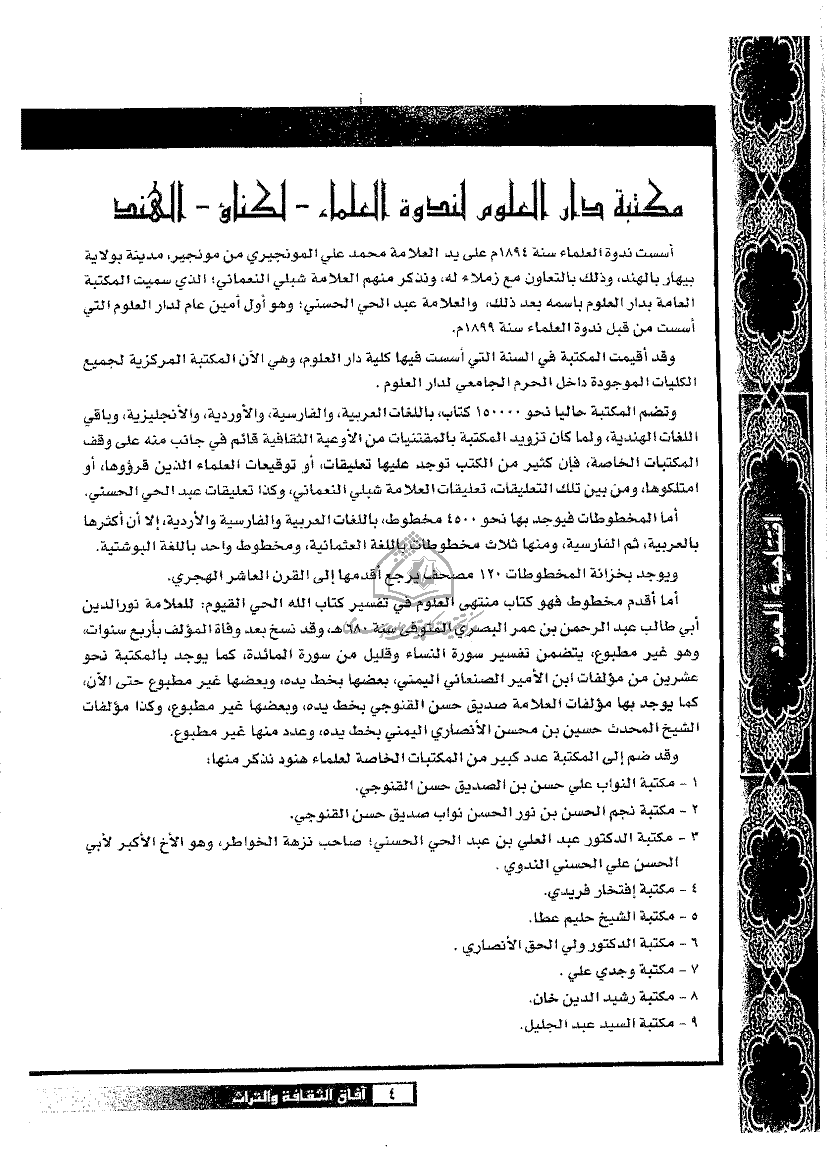 مكتبة دار العلوم لندوة العلماء - لكناؤ - الهند
أسست ندوة العلماء سنة ١٨٩٤م على يد العلامة محمد علي المونجيري من مونجير، مدينة بولاية
بيهار بالهند، وذلك بالتعاون مع زملاء له، ونذكر منهم العلامة شبلي النعماني؛ الذي سميت المكتبة
العامة بدار العلوم باسمه بعد ذلك، والعلامة عبد الحي الحسني؛ وهو أول أمين عام لدار العلوم التي
أسست من قبل ندوة العلماء سنة ١٨٩٩م.
وقد أقيمت المكتبة في السنة التي أسست فيها كلية دار العلوم، وهي الآن المكتبة المركزية لجميع
الكليات الموجودة داخل الحرم الجامعي لدار العلوم .
وتضم المكتبة حاليا نحو ١٥٠٠٠٠ كتاب، باللغات العربية، والفارسية، والأوردية، والأنجليزية، وباقي
اللغات الهندية، ولما كان تزويد المكتبة بالمقتنيات من الأوعية الثقافية قائم في جانب منه على وقف
المكتبات الخاصة، فإن كثير من الكتب توجد عليها تعليقات، أو توقيعات العلماء الذين قرؤوها، أو
امتلكوها، ومن بين تلك التعليقات، تعليقات العلامة شبلي النعماني، وكذا تعليقات عبد الحي الحسني.
أما المخطوطات فيوجد بها نحو ٤٥٠٠ مخطوط، باللغات العربية والفارسية والأردية، إلا أن أكثرها
بالعربية، ثم الفارسية، ومنها ثلاث مخطوطات باللغة العثمانية، ومخطوط واحد باللغة البوشتية.
ويوجد بخزانة المخطوطات ١٢٠ مصحف يرجع أقدمها إلى القرن العاشر الهجري.
أما أقدم مخطوط فهو كتاب منتهى العلوم في تفسير كتاب الله الحي القيوم: للعلامة نورالدين
أبي طالب عبد الرحمن بن عمر البصري المتوفى سنة ٦٨٠هـ، وقد نسخ بعد وفاة المؤلف بأربع سنوات،
وهو غير مطبوع، يتضمن تفسير سورة النساء وقليل من سورة المائدة، كما يوجد بالمكتبة نحو
عشرين من مؤلفات ابن الأمير الصنعاني اليمني، بعضها بخط يده، وبعضها غير مطبوع حتى الآن،
كما يوجد بها مؤلفات العلامة صديق حسن القنوجي بخط يده، وبعضها غير مطبوع، وكذا مؤلفات
الشيخ المحدث حسين بن محسن الأنصاري اليمني بخط يده، وعدد منها غير مطبوع.
وقد ضم إلى المكتبة عدد كبير من المكتبات الخاصة لعلماء هنود نذكر منها:
١ - مكتبة النواب علي حسن بن الصديق حسن القنوجي.
٢ - مكتبة نجم الحسن بن نور الحسن نواب صديق حسن القنوجي.
٣ - مكتبة الدكتور عبد العلي بن عبد الحي الحسني؛ صاحب نزهة الخواطر، وهو الأخ الأكبر لأبي
الحسن علي الحسني الندوي .
٤ - مكتبة إفتخار فريدي.
٥ - مكتبة الشيخ حليم عطا.
٦ - مكتبة الدكتور ولي الحق الأنصاري .
٧ - مكتبة وجدي علي .
٨ - مكتبة رشيد الدين خان.
٩ - مكتبة السيد عبد الجليل.
إفتتاحية العدد
٤ آفاق الثقافة والتراث